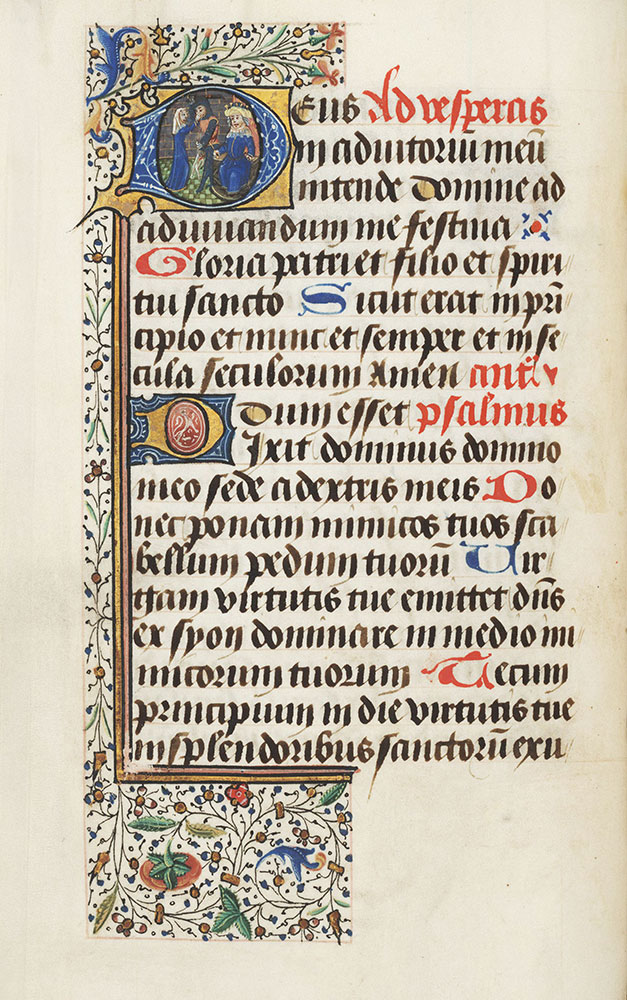 Deus Ad vesperas
in adiutoriū meū
intende Domine ad
adiuuandum me festina
Gloria patri et filio et spiri
tui sancto Sicut erat in pri
cipio et nunc et semper et in se
cula seculorum Amen ant̄
Dum esset psalmus
Dixit dominus domino
meo sede a dextris meis Do
nec ponam inimicos tuos sca
bellum pedum tuorū Vir
gam virtutis tue emittet dn̄s
ex syon dominare in medio ini
micorum tuorum Tecum
principium in die virtutis tue
in splendoribus sanctorū exu